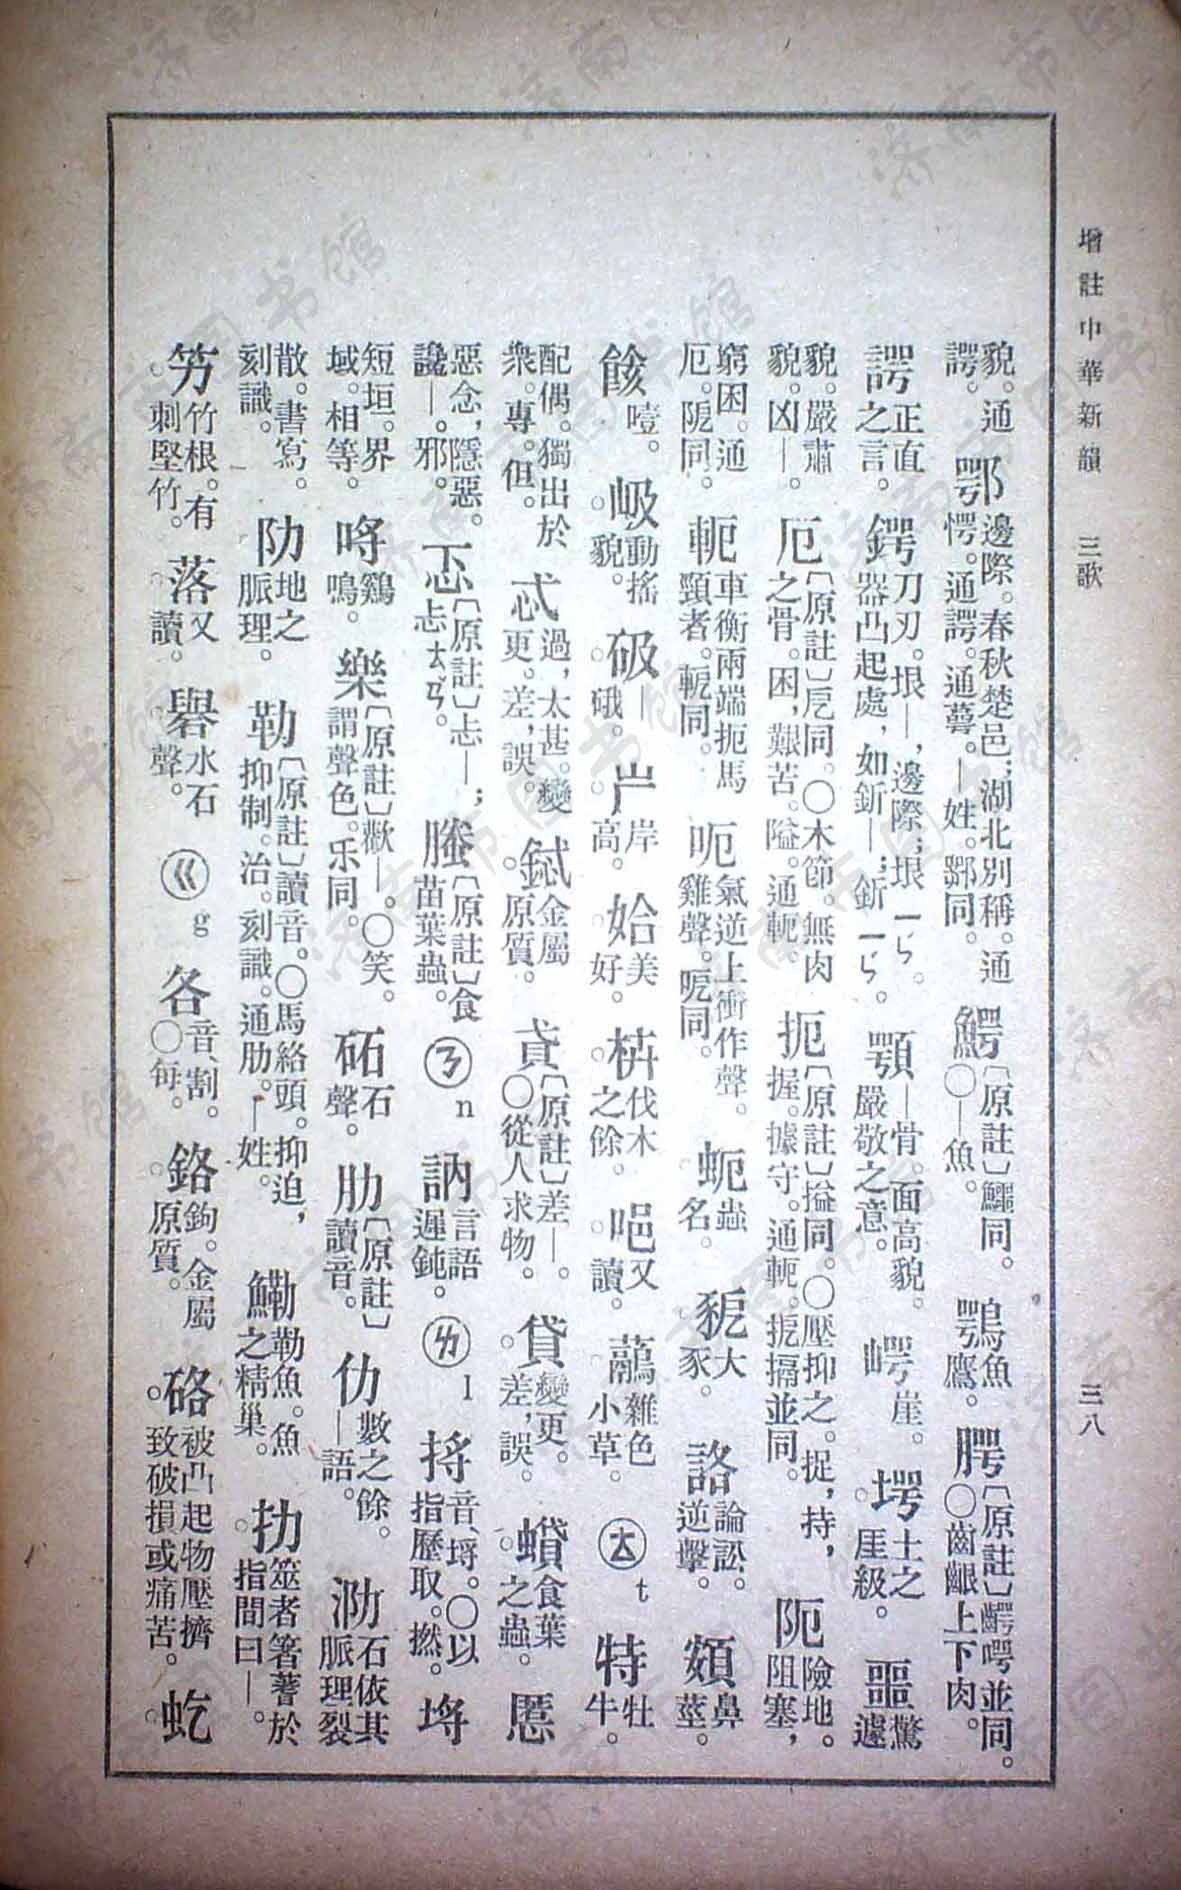 增註中華新韻 三歌 三八
貌。通諤。鄂邊際。春秋楚邑；湖北別稱。通愕。通諤。通蕚。—姓。鄂同。鰐〔原註〕鱷同。〇—魚。鶚魚鷹。腭〔原註〕齶咢並同。〇齒齦上下肉。
諤正直之言。鍔刀刃。垠—，邊際；垠ㄧㄣˊ。器凸起處，如釿—；釿ㄧㄣˊ。顎—骨。面高貌。嚴敬之意。崿崖。堮土之厓級。噩驚遽
貌。嚴肅貌。凶—。厄〔原註〕戹同。〇木節。無肉之骨。困，艱苦。隘。通軛。扼〔原註〕搤同。〇壓抑之。捉，持，握。據守。通軛。扼搹並同。阨險地。阻塞，
窮困。通厄。阸同。軛車衡兩端扼馬頸者。軶同。呃氣逆上衝作聲。雞聲。呝同。蚅蟲名。豟大豕。詻論訟。逆擊。頞鼻莖。
餩噎。岋動搖貌。砐—硪。屵岸高。姶美好。枿伐木之餘。唈又讀。虉雜色小草。㊀t特牡牛。
配偶。獨出於衆。專。但。忒過，太甚。變更。差，誤。鋱金屬原質。貣〔原註〕差—。〇從人求物。貸變更。差，誤。蟘食葉之蟲。慝
惡念，隱惡。讒—。邪。忑〔原註〕忐—；忐ㄊㄢˇ。螣〔原註〕食苗葉蟲。ㄋn訥言語遲鈍。ㄌl捋音、埒。〇以指歷取。撚。埒
短垣。界域。相等。哷鷄鳴。樂〔原註〕歡—。〇笑。謂聲色。乐同。砳石聲。肋〔原註〕讀音。仂數之餘。—語。泐石依其脈理裂
散。書寫。刻識。阞地之脈理。勒〔原註〕讀音。〇馬絡頭。抑迫，抑制。治。刻識。通肋。—姓。鰳勒魚。魚之精巢。扐筮者蓍著於指間曰—。
竻竹根。有刺堅竹。落又讀。礐水石聲。ㄍg各音、割。〇每。鉻鉤。金屬原質。硌被凸起物壓擠致破損或痛苦。虼